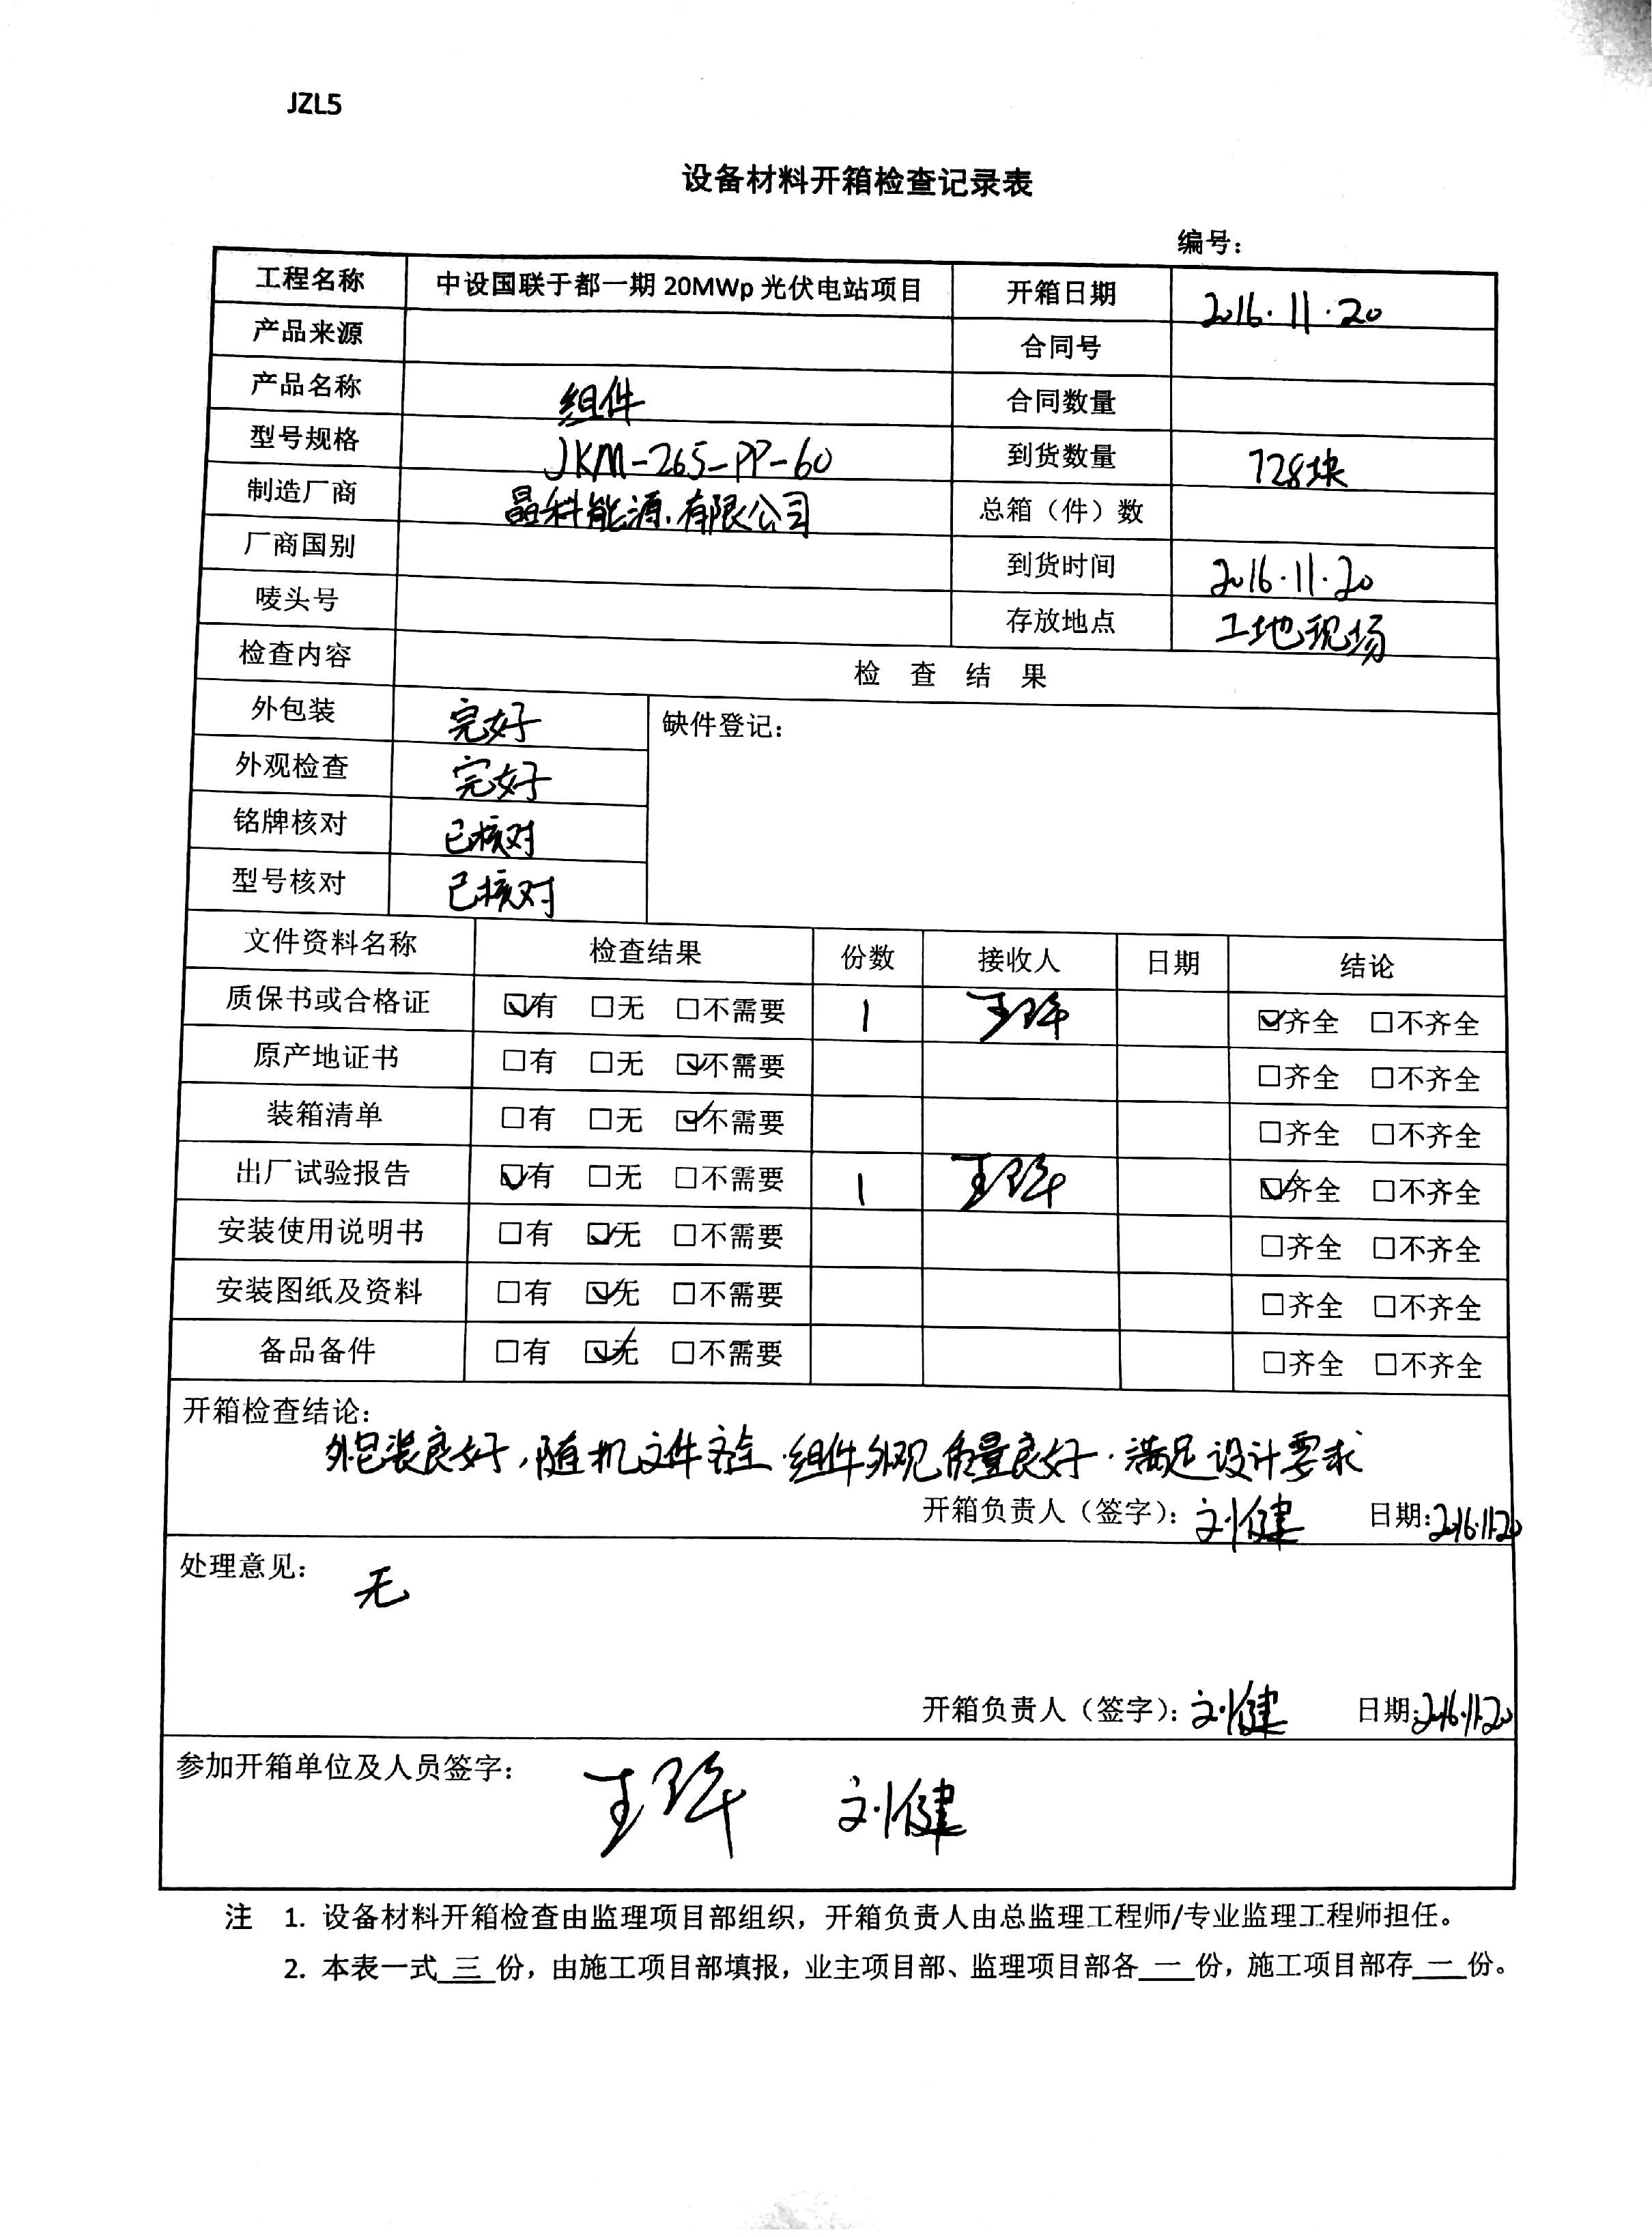 JZL5
设备材料开箱检查记录表
编号：
工程名称 中设国联于都一期 20MWp 光伏电站项目 开箱日期 2016.11.20
产品来源 合同号
产品名称 组件 合同数量
型号规格 JKM-265-PP-60 到货数量 728块
制造厂商 晶科能源有限公司 总箱（件）数
厂商国别 到货时间 2016.11.20
唛头号 存放地点 工地现场
检查内容 检 查 结 果
外包装 完好 缺件登记：
外观检查 完好
铭牌核对 已核对
型号核对 已核对
文件资料名称 检查结果 份数 接收人 日期 结论
质保书或合格证 ☑有 □无 □不需要 1 ☑齐全 □不齐全
原产地证书 □有 □无 ☑不需要 □齐全 □不齐全
装箱清单 □有 □无 ☑不需要 □齐全 □不齐全
出厂试验报告 ☑有 □无 □不需要 1 ☑齐全 □不齐全
安装使用说明书 □有 ☑无 □不需要 □齐全 □不齐全
安装图纸及资料 □有 ☑无 □不需要 □齐全 □不齐全
备品备件 □有 ☑无 □不需要 □齐全 □不齐全
开箱检查结论：
外包装良好，随机文件齐全.组件外观质量良好.满足设计要求
开箱负责人（签字）：刘健 日期：2016.11.20
处理意见：无
开箱负责人（签字）：刘健 日期：2016.11.20
参加开箱单位及人员签字： 刘健
注 1. 设备材料开箱检查由监理项目部组织，开箱负责人由总监理工程师/专业监理工程师担任。
2. 本表一式 三 份，由施工项目部填报，业主项目部、监理项目部各 一 份，施工项目部存 一 份。